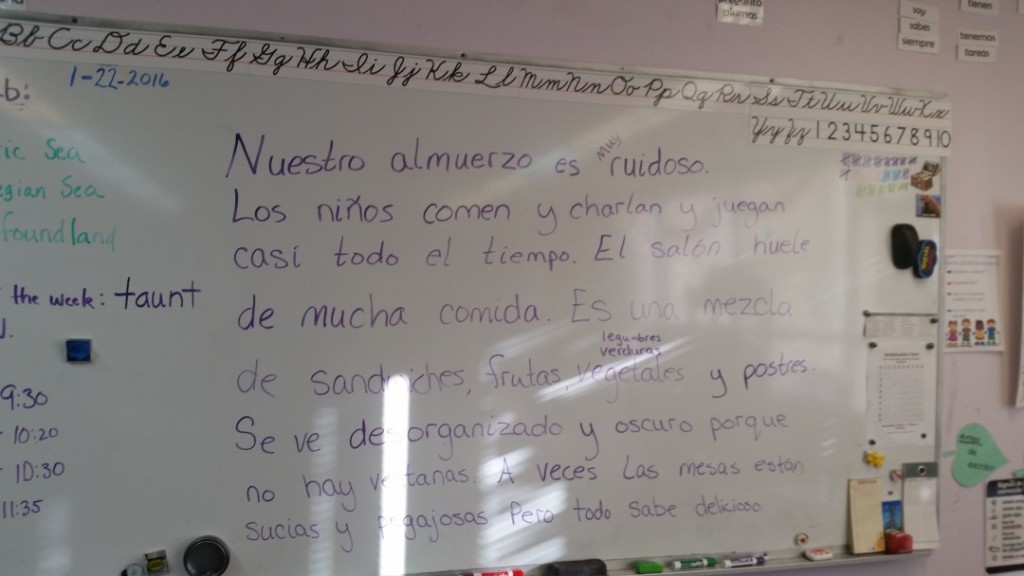 pianos
soy
sabes
siempre
tienen
tenemos
tareas
Bb Cc Dd Ee Ff Gg Hh Ii Jj Kk Ll Mm Nn Oo Pp Qq Rr Ss Tt Uu Vv Ww Xx
Yy Zz 1 2 3 4 5 6 7 8 9 10
b:
1-22-2016
ic Sea
egian Sea
foundland
the week: taunt
9:30
10:20
10:30
11:35
Nuestro almuerzo es muy ruidoso.
Los niños comen y charlan y juegan
casí todo el tiempo. El salón huele
de mucha comida. Es una mezcla
legumbres
verduras
de sandwiches, frutas, vegetales y postres.
Se ve desorganizado y oscuro porque
no hay ventanas. A veces las mesas están
sucias y pegajosas. Pero todo sabe delicioso.
Antes
de
escribir